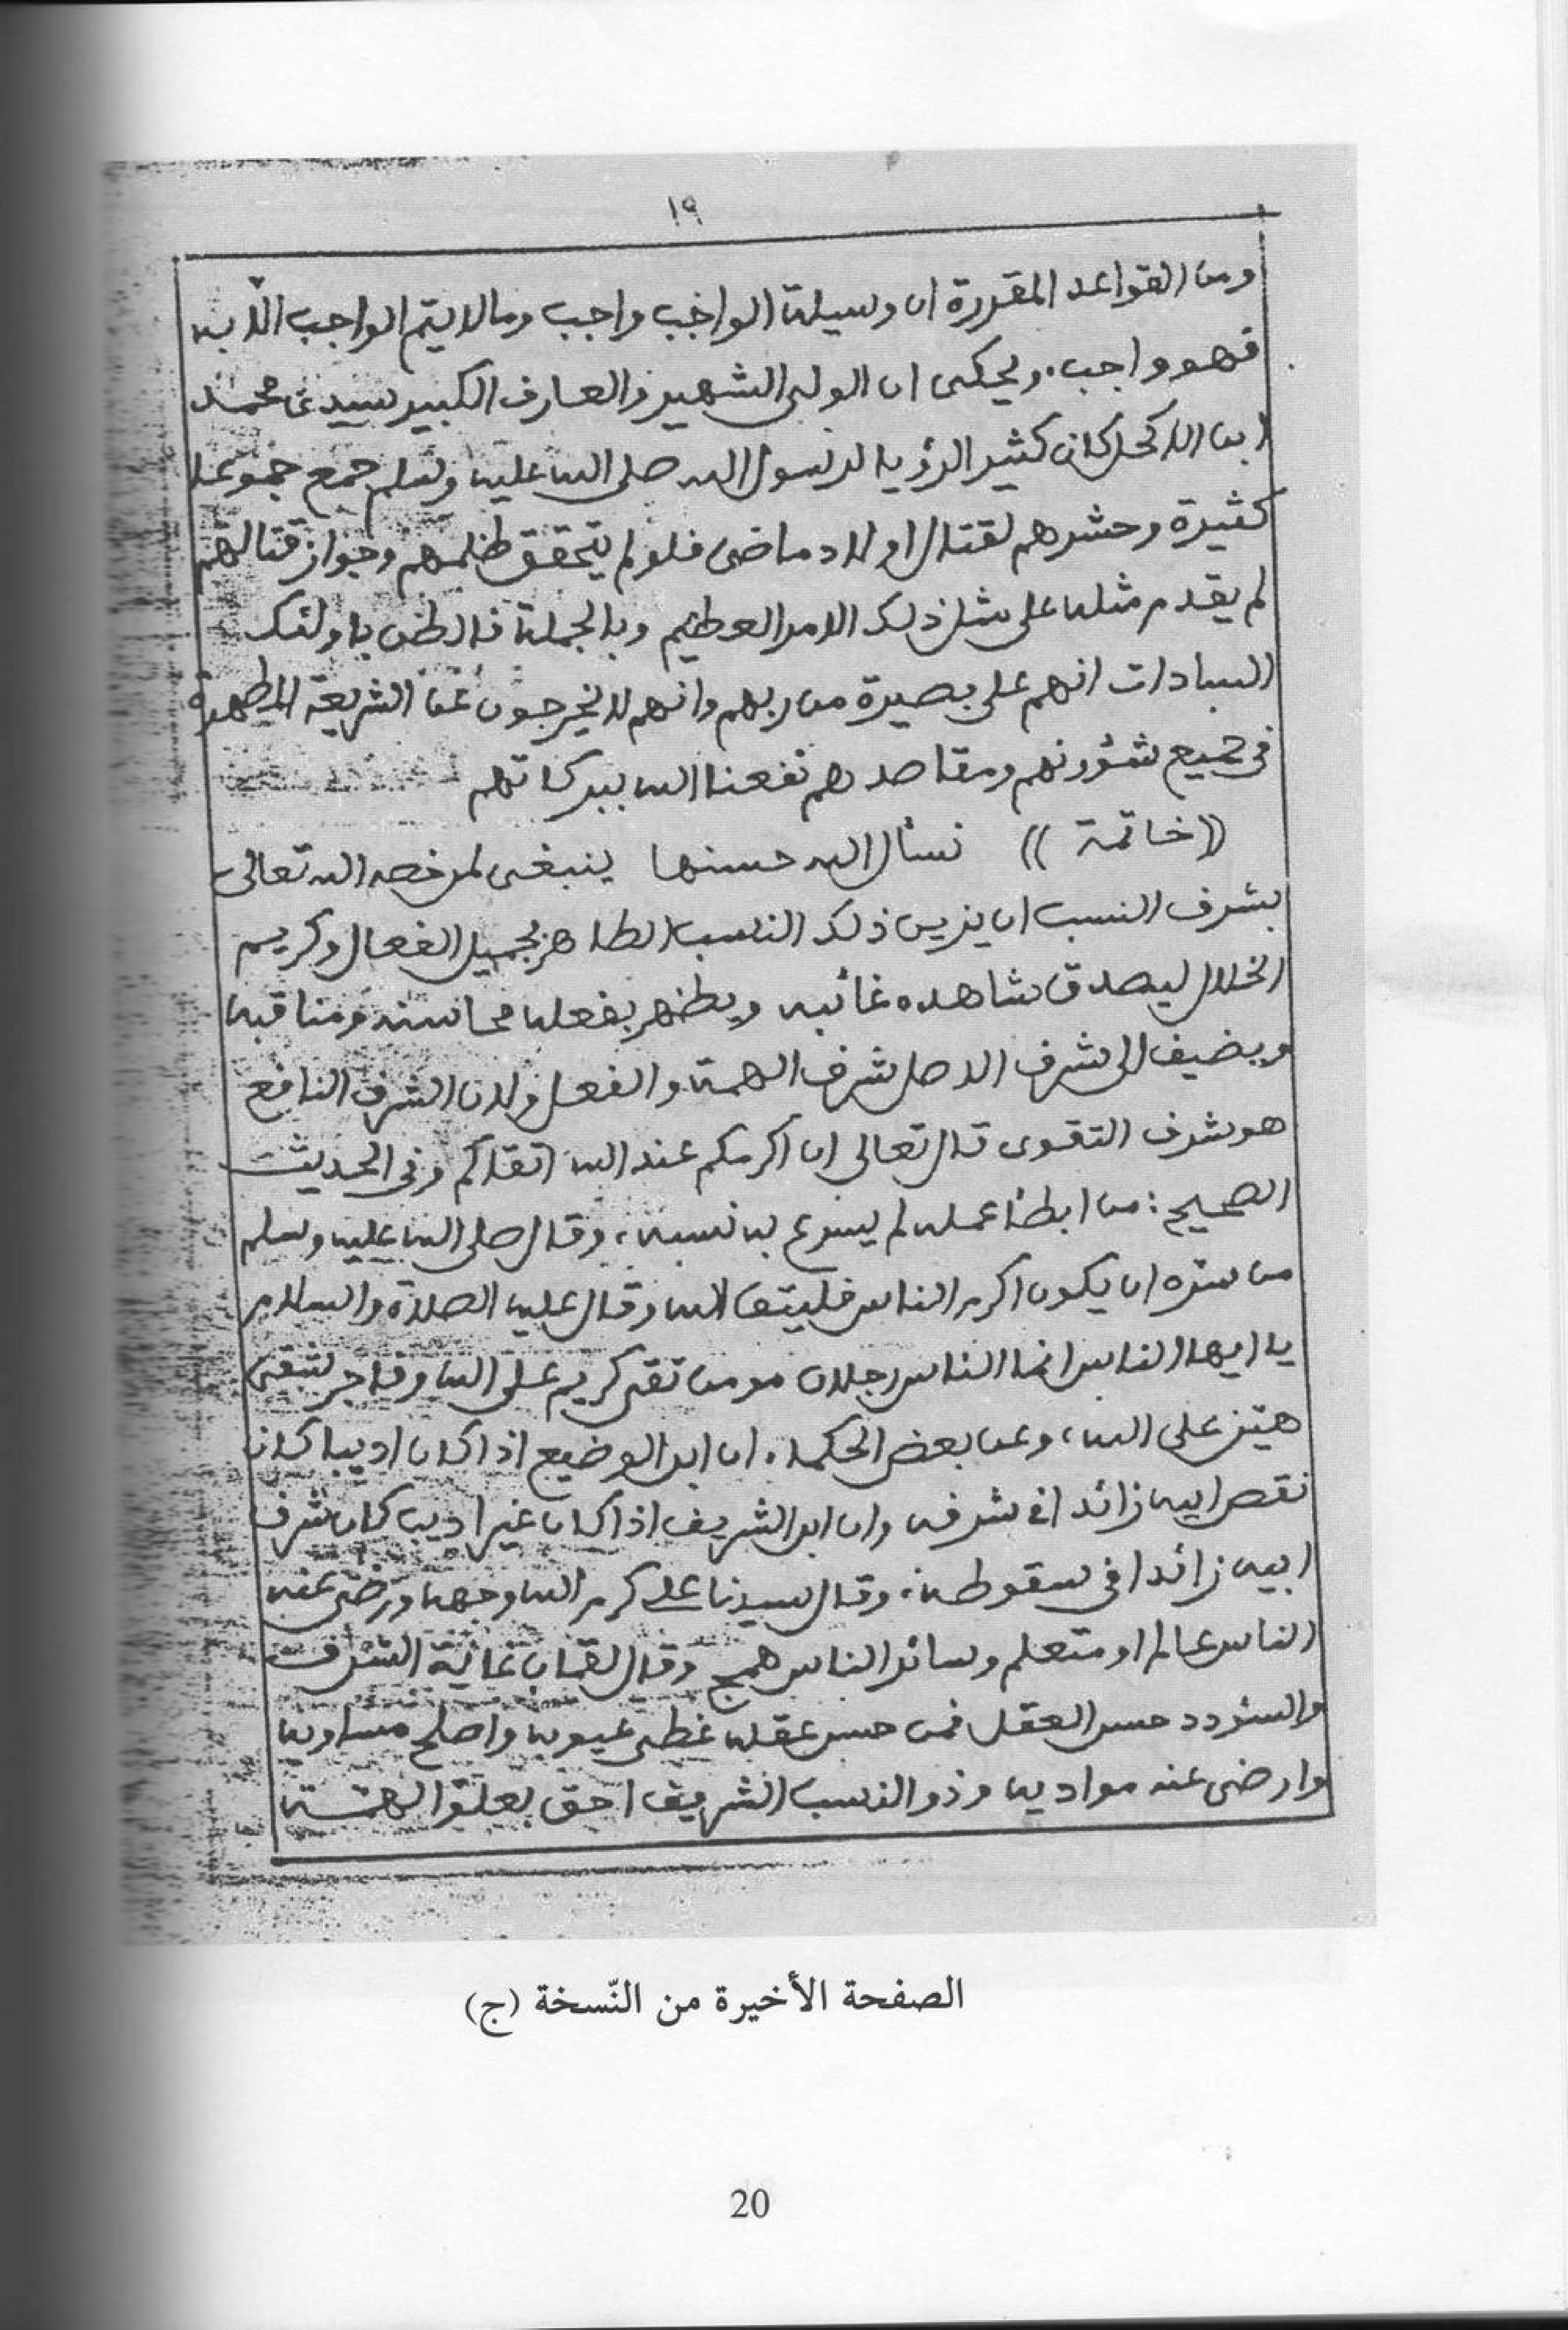 ١٩
ومن القواعد المقررة ان وسيلة الواجب واجب ومالا يتم الواجب الّا به
فهو واجب. ويحكى ان الولى الشهير والعارف الكبير سيدى محمد
ابن الاكحل كان كثير الرؤيا لرسول الله صلى الله عليه وسلم جمع جموعا
كثيرة وحشدهم لقتال اولاد ماضى فلو لم يتحقق ظلمهم وجواز قتالهم
لم يقدم مثله على مثل ذلك الامر العظيم وبالجملة فالظن باولئك
السادات انهم على بصيرة من ربهم وانهم لا يخرجون عن الشريعة المطهرة
فى جميع شؤونهم ومقاصدهم نفعنا الله ببركاتهم
((خاتمة)) نسأل الله حسنها ينبغى لمن خصه الله تعالى
بشرف النسب ان يزين ذلك النسب الطاهر بجميل الفعال وكريم
الخلال ليصدق شاهده غائبه ويظهر بفعله محاسنه ومناقبه
ويضيف الى شرف الاصل شرف الهمة والفعل ولان الشرف النافع
هو شرف التقوى قال تعالى ان اكرمكم عند الله اتقاكم وفى الحديث
الصحيح: من ابطأ عمله لم يسرع به نسبه، وقال صلى الله عليه وسلم
من سره ان يكون اكرم الناس فليتق الله وقال عليه الصلاة والسلام
يا ايها الناس انما الناس رجلان مومن تقى كريم على الله وفاجر شقى
هيّن على الله، وعن بعض الحكماء ان ابن الوضيع اذا كان اديبا كان
نقص ابيه زائدا فى شرفه وان ابن الشريف اذا كان غير اديب كان شرف
ابيه زائدا فى سقوطه، وقال سيدنا على كرم الله وجهه ورضى عنه
الناس عالم او متعلم وسائر الناس همج وقال لقمان غاية الشرف
والسؤدد حسن العقل فمن حسن عقله غطى عيوبه واصلح مساويه
وارضى عنه مواديه وذو النسب الشريف احق بعلوّ الهمّة
الصفحة الأخيرة من النّسخة (ج)
20